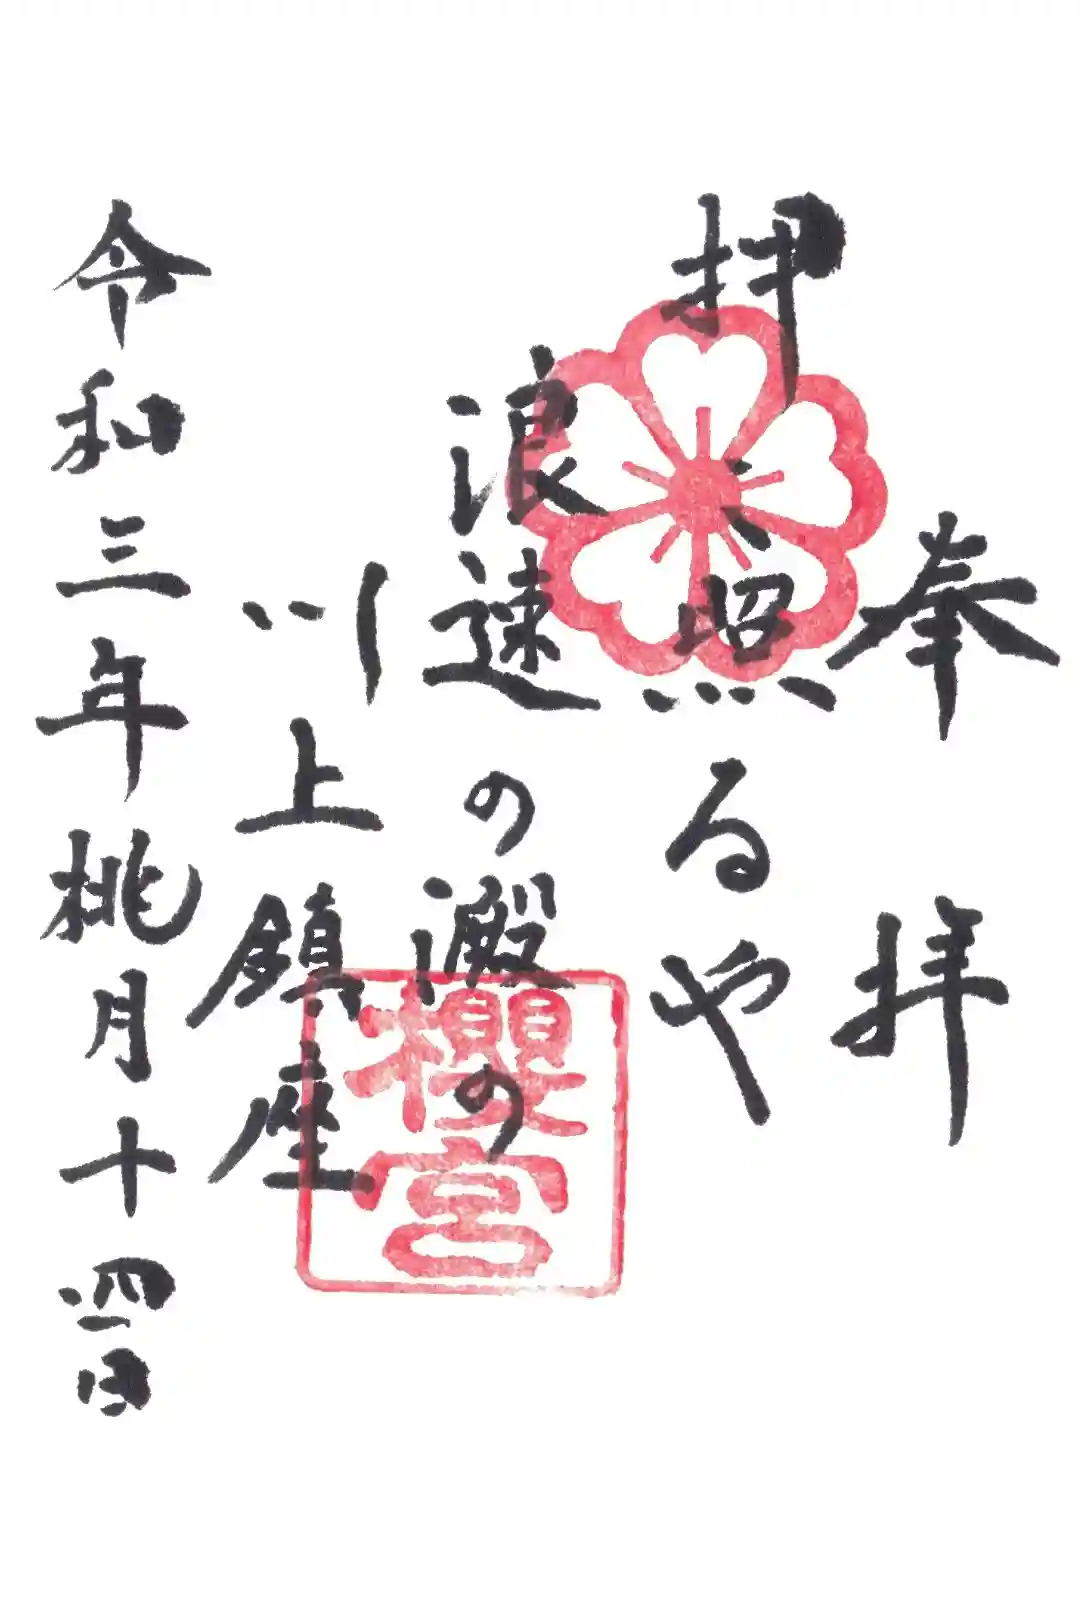 奉拝
押し照るや
浪速の澱の
川上鎮座
令和三年桃月十四日
櫻宮